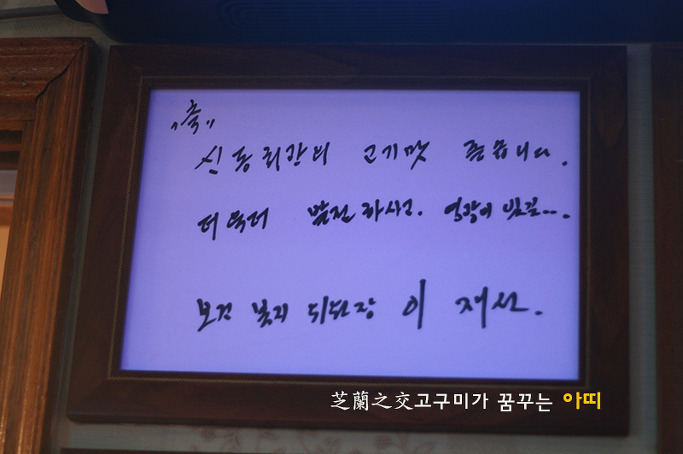 "축"
신동회관의 고기맛 좋습니다.
더욱더 발전하시고. 영광이 있길...
보건 복지 위원장 이 재선.
芝蘭之交고구미가 꿈꾸는 아띠